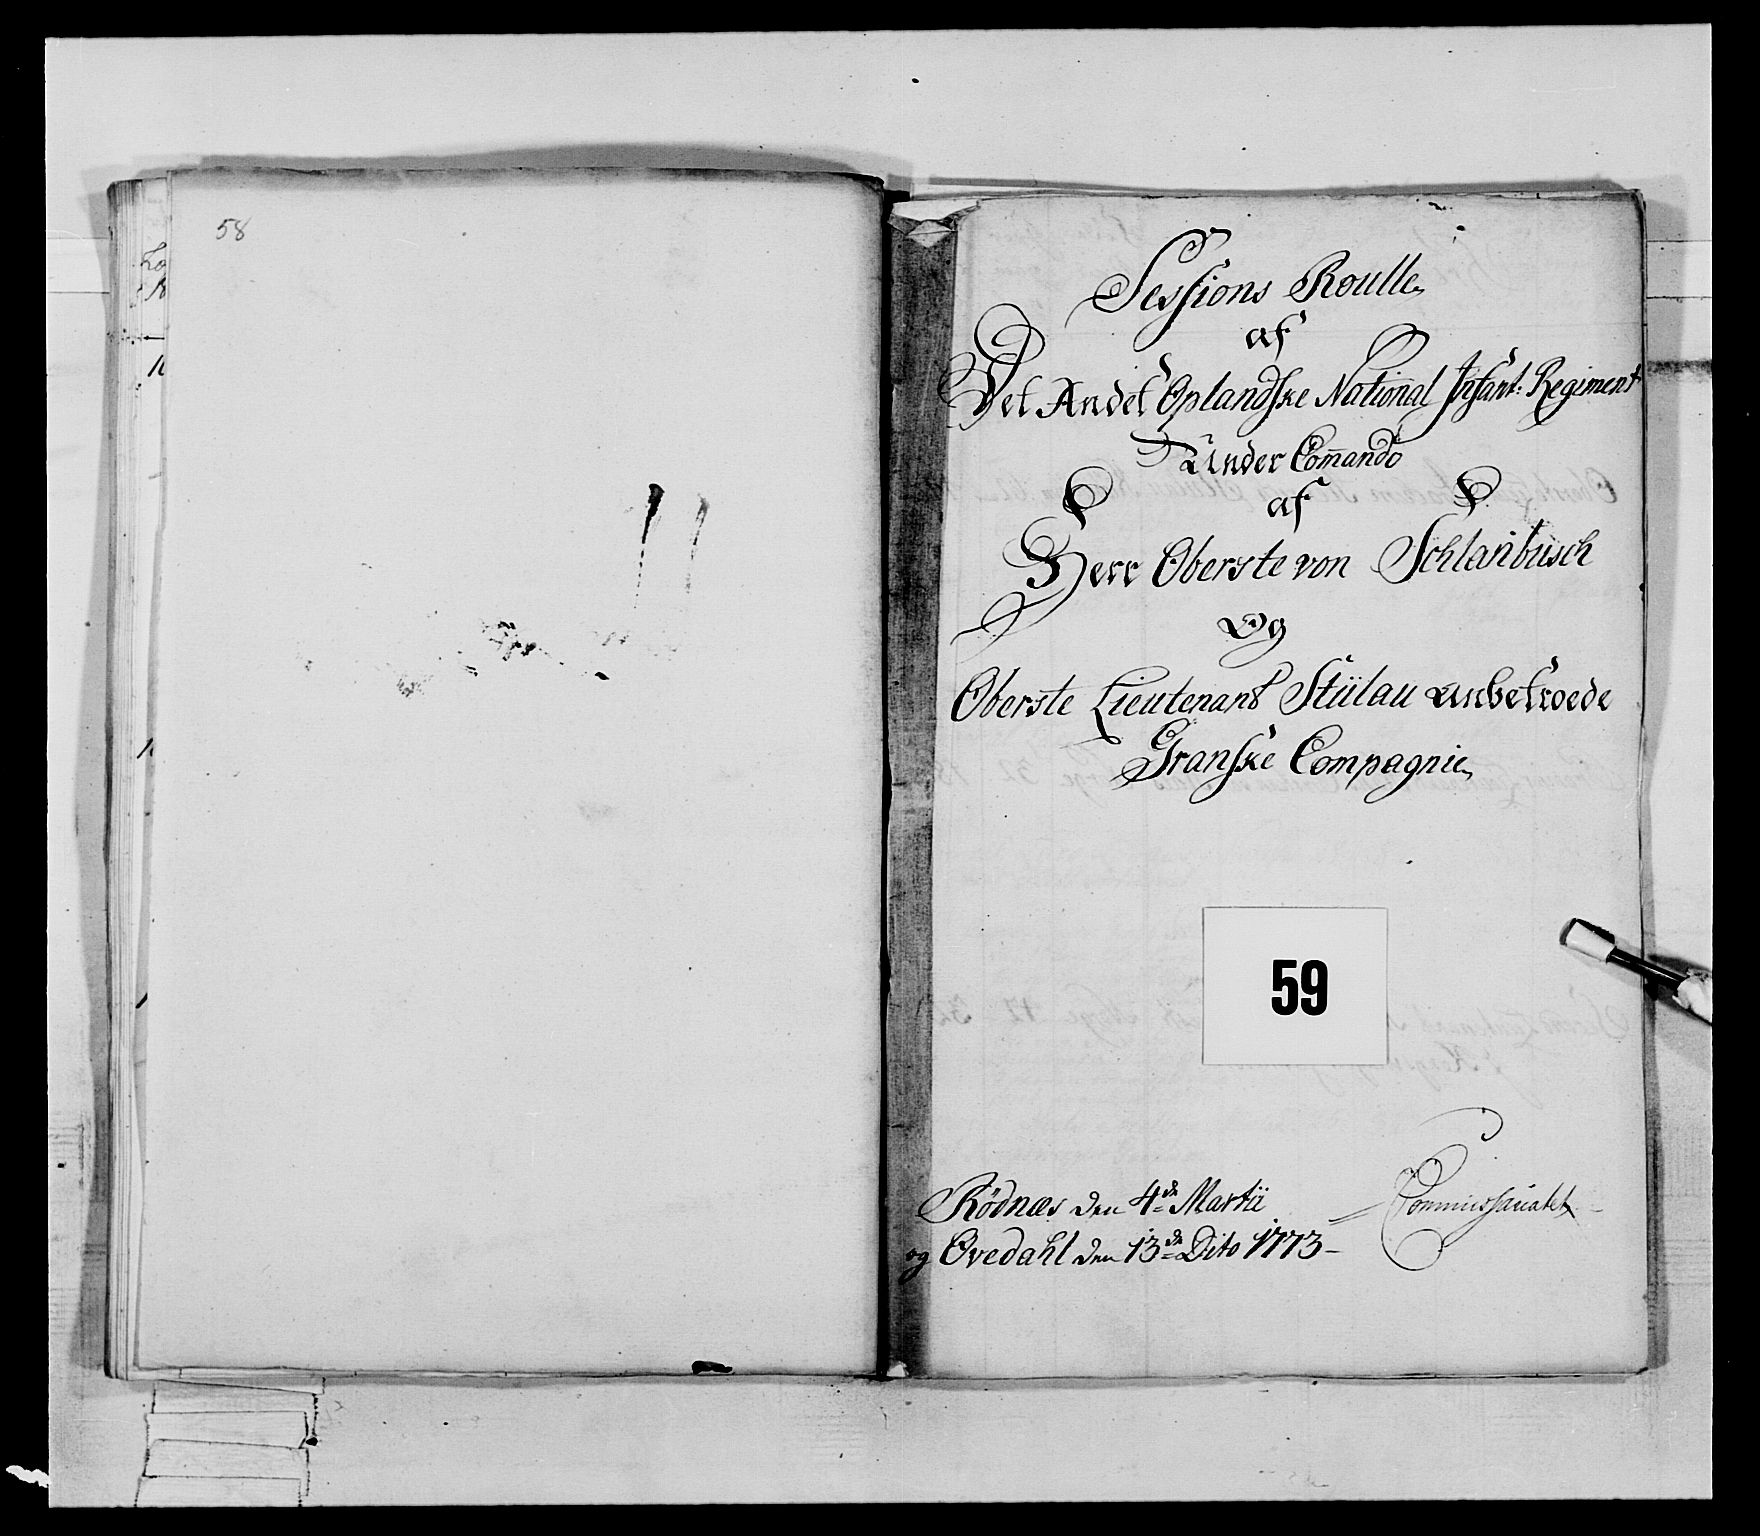 58
Sessions Roulle
af
Det Andet Oplandske National Infant: Regiment
Under Com̄ando
af
Herr Oberste von Schlanbusch
Og
Oberste Lieutenant Stülau anbetroede
Granske Compagnie
59
Rödnæs den 4de Martii
Commissariatet
og Ovedahl den 13de Dito 1773